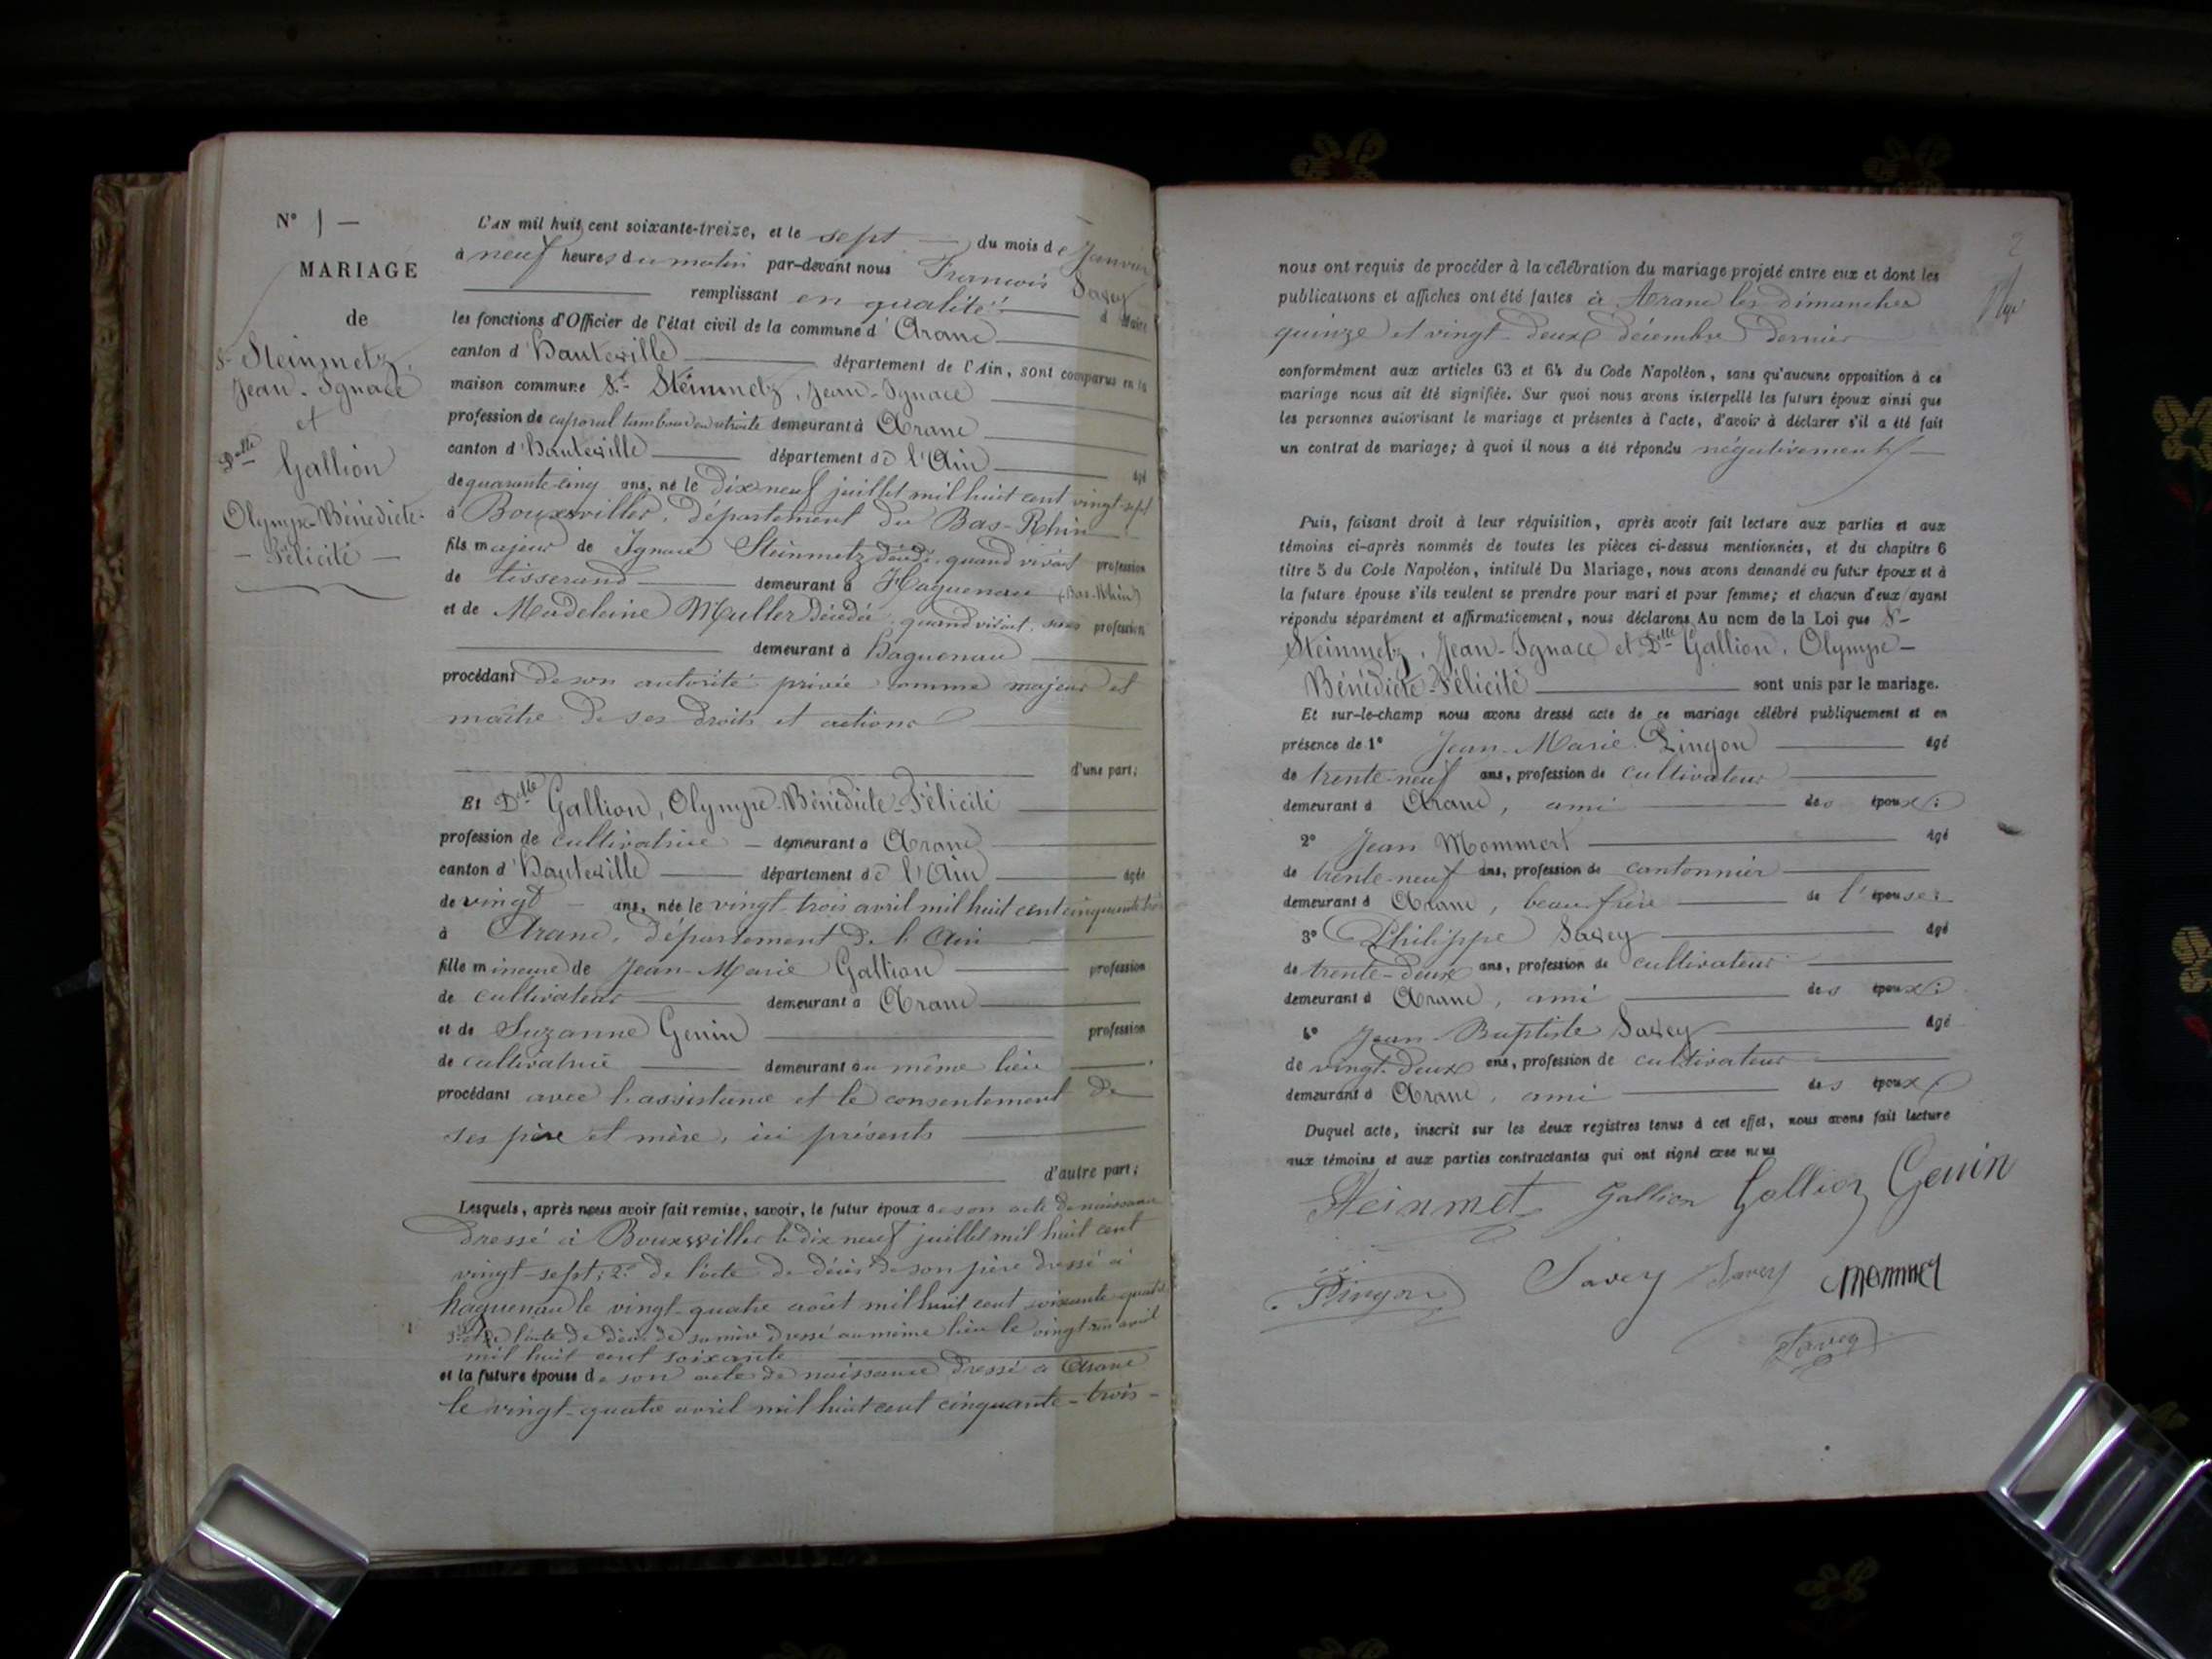 N° 1 —
MARIAGE
de
Sr Steinmetz,
Jean-Ignace
et
Delle Gallion
Olympe-Bénédicte-
— Félicité —
L'AN mil huit cent soixante-treize, et le sept — du mois de Janvier
à neuf heures du matin par-devant nous François Savey
remplissant en qualité d Maire
les fonctions d'Officier de l'état civil de la commune d' Aranc
canton d' Hauteville département de l'Ain, sont comparus en la
maison commune Sr Steinmetz, Jean-Ignace
profession de caporal tambour en retraite demeurant à Aranc
canton d' Hauteville département de l'Ain âgé
de quarante-cinq ans, né le dix neuf juillet mil huit cent vingt-sept
à Bouxwiller, département du Bas-Rhin
fils majeur de Ignace Steinmetz décédé, quand vivait profession
de tisserand demeurant à Haguenau (Bas-Rhin)
et de Madeleine Muller décédée, quand vivait, sans profession
demeurant à haguenau
procédant de son autorité privée comme majeur et
maître de ses droits et actions
d'une part;
Et Delle Gallion, Olympe-Bénédicte-Félicité
profession de cultivatrice — demeurant à Aranc
canton d' Hauteville département de l'Ain âgée
de vingt — ans, née le vingt-trois avril mil huit cent cinquante trois
à Aranc, département de l'Ain
fille mineure de Jean-Marie Gallion profession
de cultivateur demeurant à Aranc
et de Suzanne Genin profession
de cultivatrice demeurant au même lieu
procédant avec l'assistance et le consentement de
ses père et mère, ici présents
d'autre part;
Lesquels, après nous avoir fait remise, savoir, le futur époux de son acte de naissance
dressé à Bouxwiller le dix neuf juillet mil huit cent
vingt-sept; 2° de l'acte de décès de son père dressé à
haguenau le vingt-quatre août mil huit cent soixante-quatre
3° de l'acte de décès de sa mère dressé au même lieu le vingt avril
mil huit cent soixante
et la future épouse de son acte de naissance dressé à Aranc
le vingt-quatre avril mil huit cent cinquante-trois-
2
nous ont requis de procéder à la célébration du mariage projeté entre eux et dont les
publications et affiches ont été faites à Aranc les dimanches
quinze et vingt-deux décembre dernier
conformément aux articles 63 et 64 du Code Napoléon, sans qu'aucune opposition à ce
mariage nous ait été signifiée. Sur quoi nous avons interpellé les futurs époux ainsi que
les personnes autorisant le mariage et présentes à l'acte, d'avoir à déclarer s'il a été fait
un contrat de mariage; à quoi il nous a été répondu négativement
Puis, faisant droit à leur réquisition, après avoir fait lecture aux parties et aux
témoins ci-après nommés de toutes les pièces ci-dessus mentionnées, et du chapitre 6
titre 5 du Code Napoléon, intitulé Du Mariage, nous avons demandé au futur époux et à
la future épouse s'ils veulent se prendre pour mari et pour femme; et chacun d'eux ayant
répondu séparément et affirmativement, nous déclarons Au nom de la Loi que Sr
Steinmetz, Jean-Ignace et Delle Gallion, Olympe-
Bénédicte-Félicité sont unis par le mariage.
Et sur-le-champ nous avons dressé acte de ce mariage célébré publiquement et en
présence de 1° Jean-Marie Pingon âgé
de trente-neuf ans, profession de cultivateur
demeurant à Aranc, ami des époux;
2° Jean Mommert âgé
de trente-neuf ans, profession de cantonnier
demeurant à Aranc, beau frère de l'épouse;
3° Philippe Savey âgé
de trente-deux ans, profession de cultivateur
demeurant à Aranc, ami des époux;
4° Jean-Baptiste Savey âgé
de vingt-deux ans, profession de cultivateur
demeurant à Aranc, ami des époux;
Duquel acte, inscrit sur les deux registres tenus à cet effet, nous avons fait lecture
aux témoins et aux parties contractantes qui ont signé avec nous
Steinmetz Gallion Gallion Genin
Pingon Savey Savey Mommer
Savey